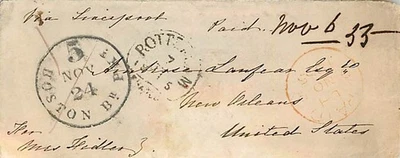 Via Liverpool
Paid. Nov 6 55
5
NOV
24
BOSTON Br. PKT
ROTTE
7
Lanfear Esqre
New Orleans
United States
For
Mrs Fidler